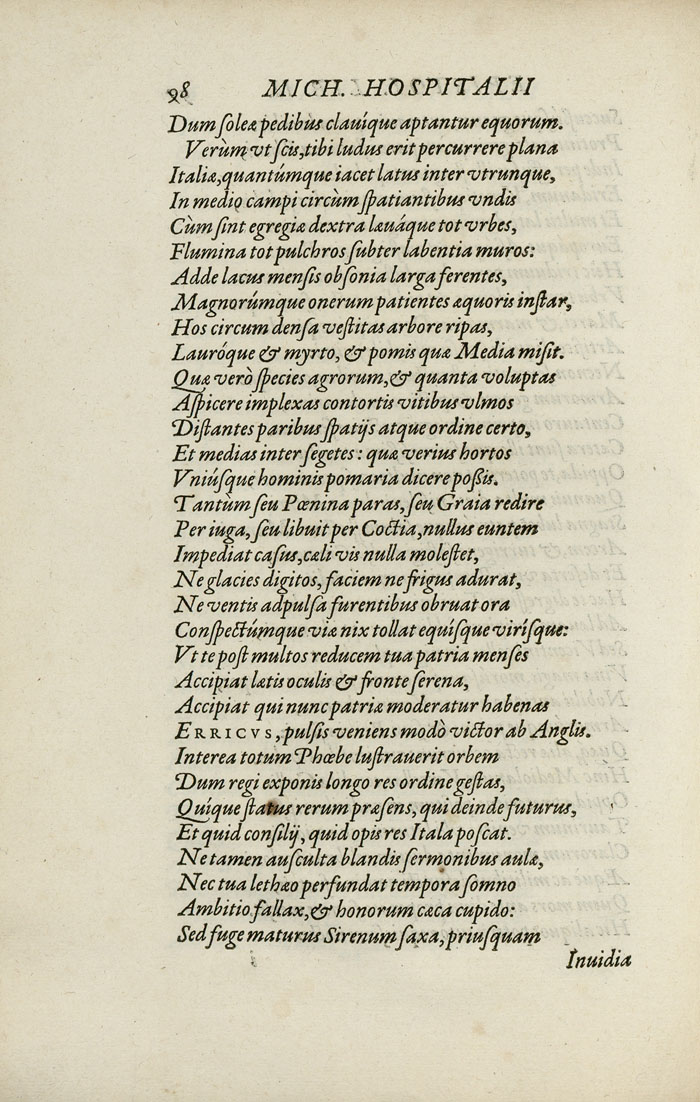 98 MICH. HOSPITALII
Dum ſoleæ pedibus clauíque aptantur equorum.
Verùm vt ſcis, tibi ludus erit percurrere plana
Italiæ, quantúmque iacet latus inter vtrunque,
In medio campi circùm ſpatiantibus vndis
Cùm ſint egregiæ dextra læuáque tot vrbes,
Flumina tot pulchros ſubter labentia muros:
Adde lacus menſis obſonia larga ferentes,
Magnorúmque onerum patientes æquoris inſtar,
Hos circum denſa veſtitas arbore ripas,
Lauróque & myrto, & pomis quæ Media miſit.
Quæ verò ſpecies agrorum, & quanta voluptas
Aſpicere implexas contortis vitibus vlmos
Diſtantes paribus ſpatijs atque ordine certo,
Et medias inter ſegetes: quæ verius hortos
Vniúſque hominis pomaria dicere poßis.
Tantùm ſeu Pœnina paras, ſeu Graia redire
Per iuga, ſeu libuit per Coctia, nullus euntem
Impediat caſus, cæli vis nulla moleſtet,
Ne glacies digitos, faciem ne frigus adurat,
Ne ventis adpulſa furentibus obruat ora
Conſpectúmque viæ nix tollat equíſque viríſque:
Vt te poſt multos reducem tua patria menſes
Accipiat lætis oculis & fronte ſerena,
Accipiat qui nunc patriæ moderatur habenas
ERRICVS, pulſis veniens modò victor ab Anglis.
Interea totum Phœbe luſtrauerit orbem
Dum regi exponis longo res ordine geſtas,
Quíque ſtatus rerum præſens, qui deinde futurus,
Et quid conſilij, quid opis res Itala poſcat.
Ne tamen auſculta blandis ſermonibus aulæ,
Nec tua lethæo perfundat tempora ſomno
Ambitio fallax, & honorum cæca cupido:
Sed fuge maturus Sirenum ſaxa, priuſquam
Inuidia